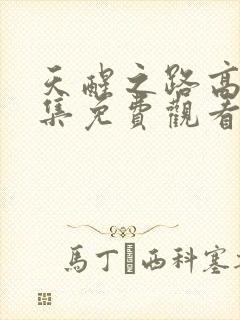 天醒之路高
集免費觀看
馬丁西科塞